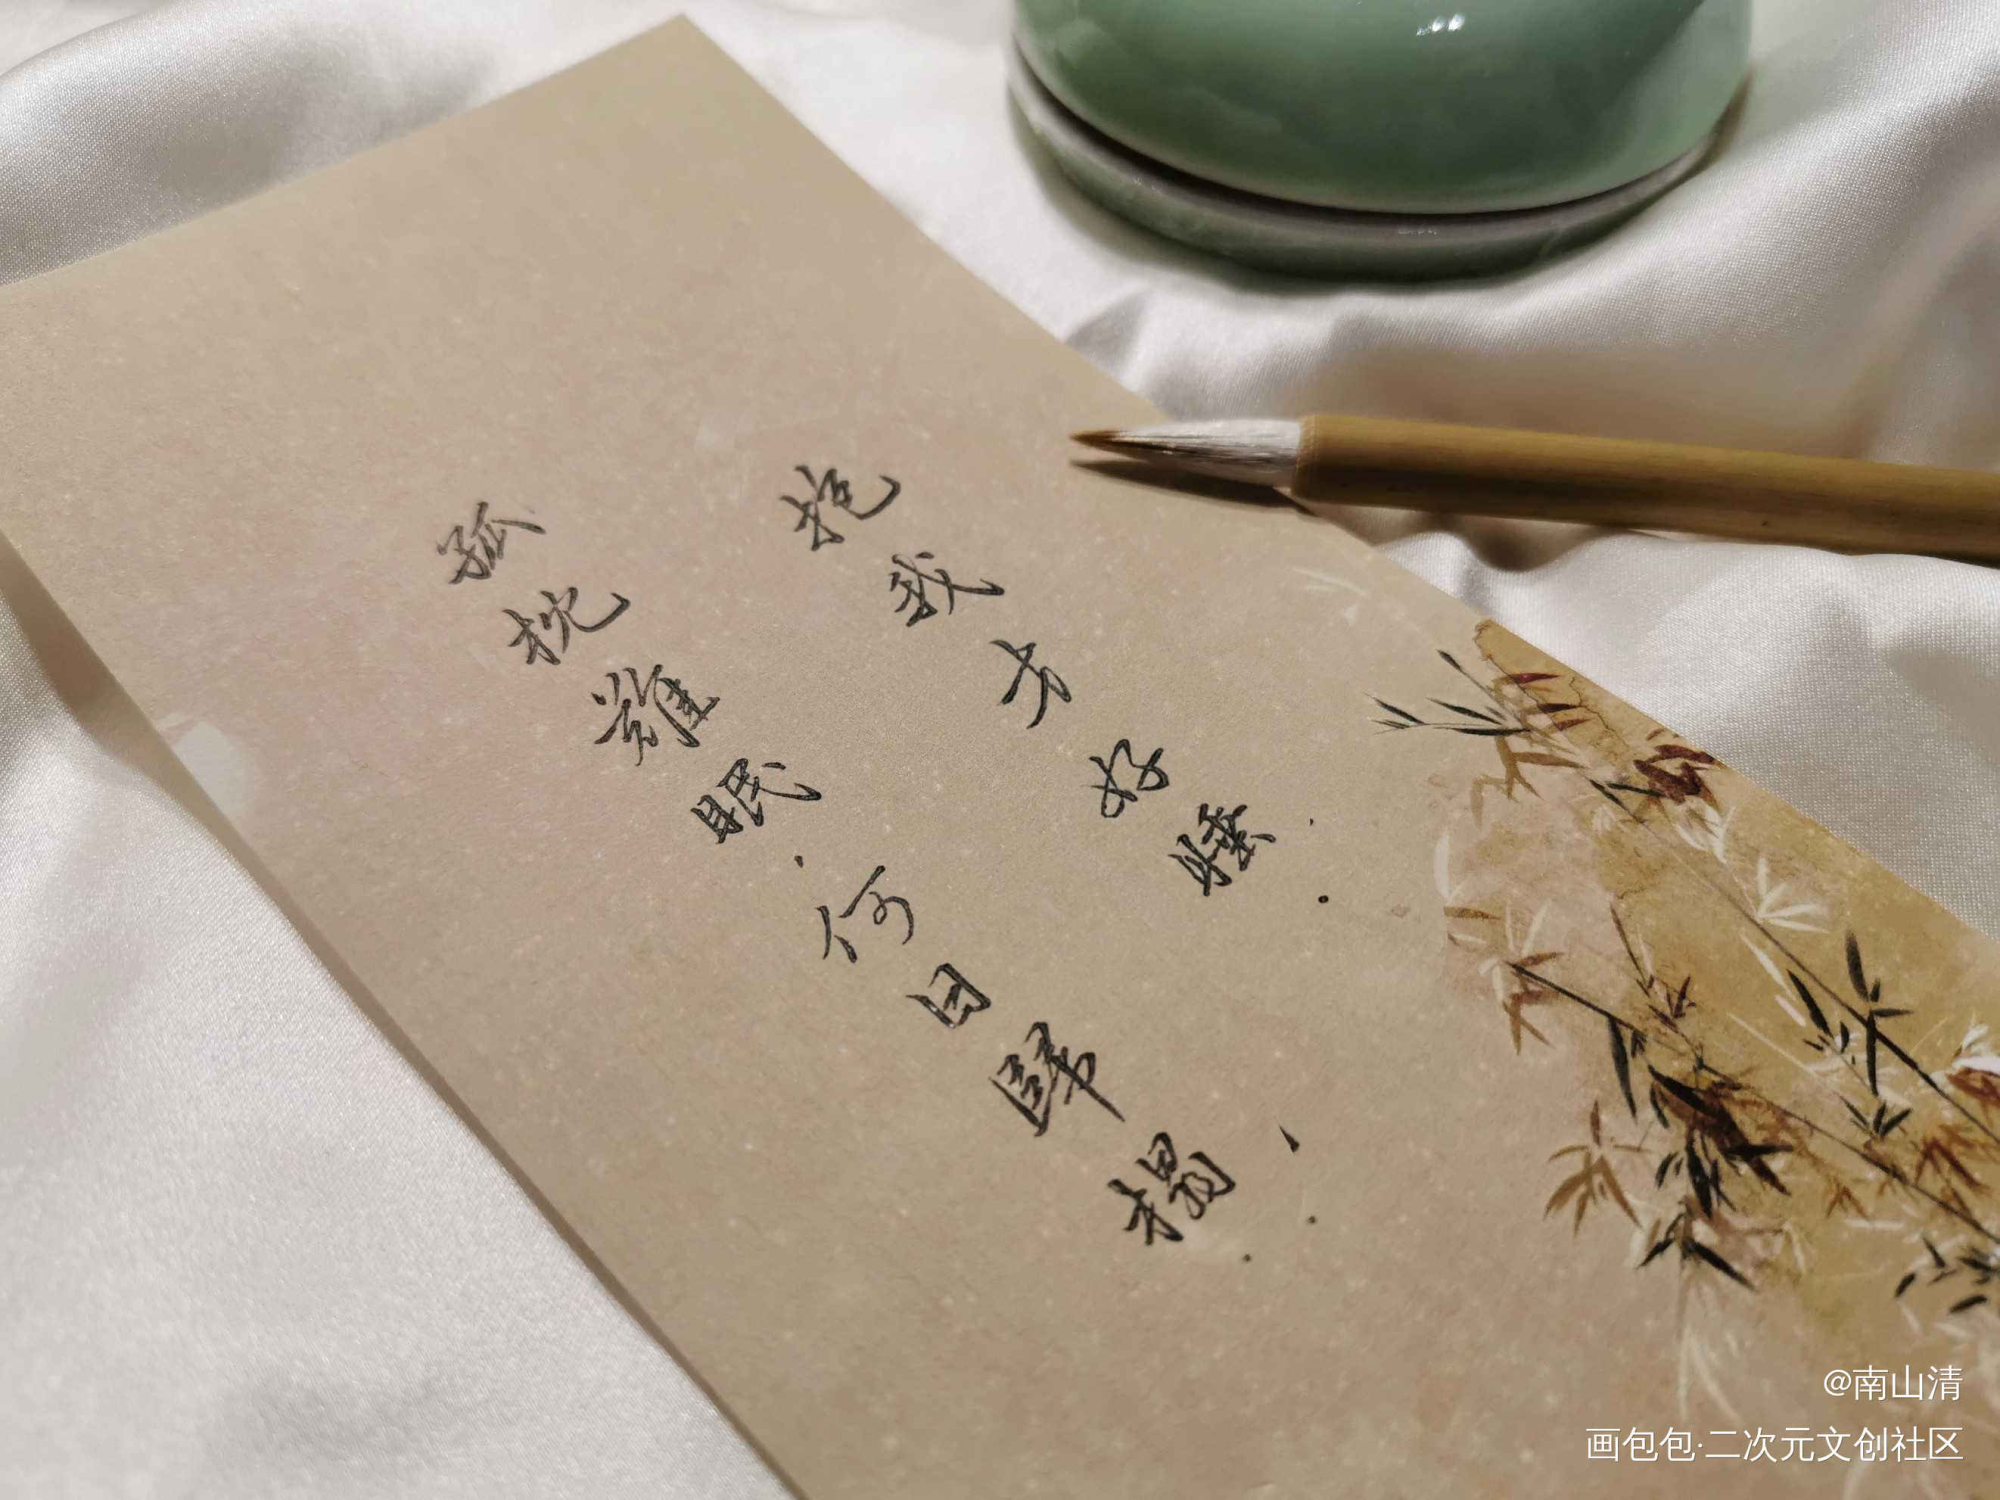 孤枕難眠，何日歸榻，
抱我方好睡。
@南山清
画包包·二次元文创社区